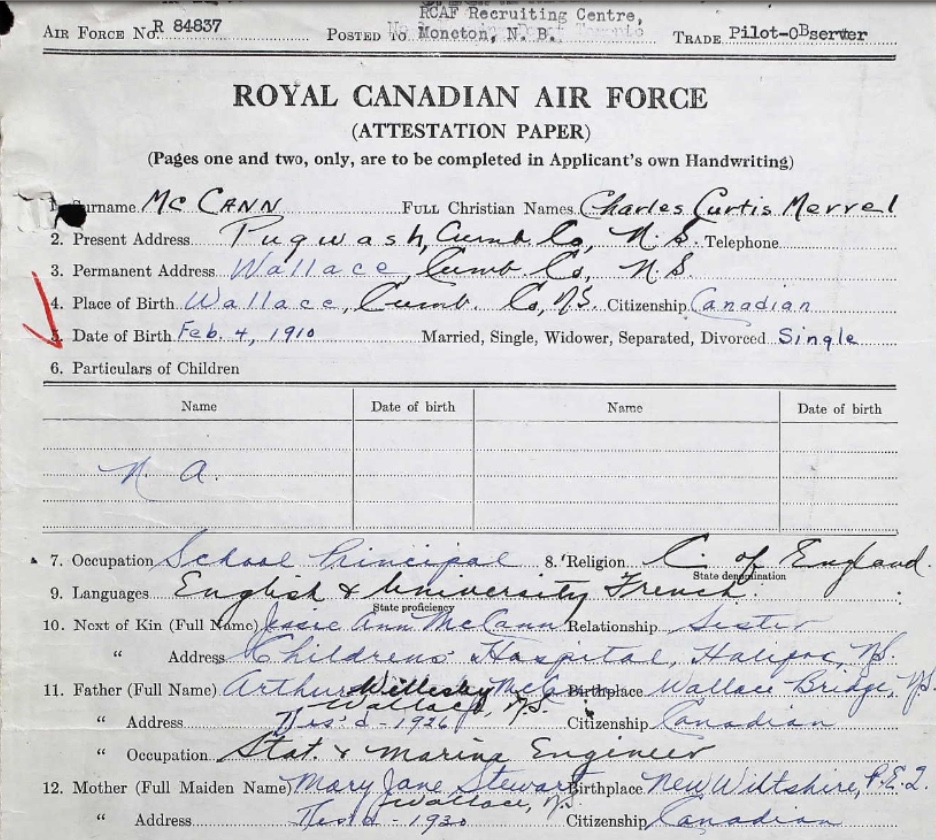 RCAF Recruiting Centre,
AIR FORCE NO. R 84837 POSTED TO Moncton, N. B. TRADE Pilot-OBserver
ROYAL CANADIAN AIR FORCE
(ATTESTATION PAPER)
(Pages one and two, only, are to be completed in Applicant's own Handwriting)
1. Surname McCANN FULL Christian Names Charles Curtis Merrel
2. Present Address Pugwash, Cumb. Co, N.S. Telephone
3. Permanent Address Wallace, Cumb. Co, N.S.
4. Place of Birth Wallace, Cumb. Co, N.S. Citizenship Canadian
5. Date of Birth Feb. 4, 1910 Married, Single, Widower, Separated, Divorced Single
6. Particulars of Children
Name Date of birth Name Date of birth
N. A.
7. Occupation School Principal 8. Religion C. of England.
State denomination
9. Languages English & University French.
State proficiency
10. Next of Kin (Full Name) Jessie Ann McCann Relationship Sister
" Address Childrens' Hospital, Halifax, N.S.
11. Father (Full Name) Arthur Wellesley McC Birthplace Wallace Bridge, N.S.
Wallace, N.S.
" Address Des'd - 1926 Citizenship Canadian
" Occupation Stat. & Marine Engineer
12. Mother (Full Maiden Name) Mary Jane Stewart Birthplace New Wiltshire, P.E.I.
Wallace, N.S.
" Address Des'd - 1930 Citizenship Canadian